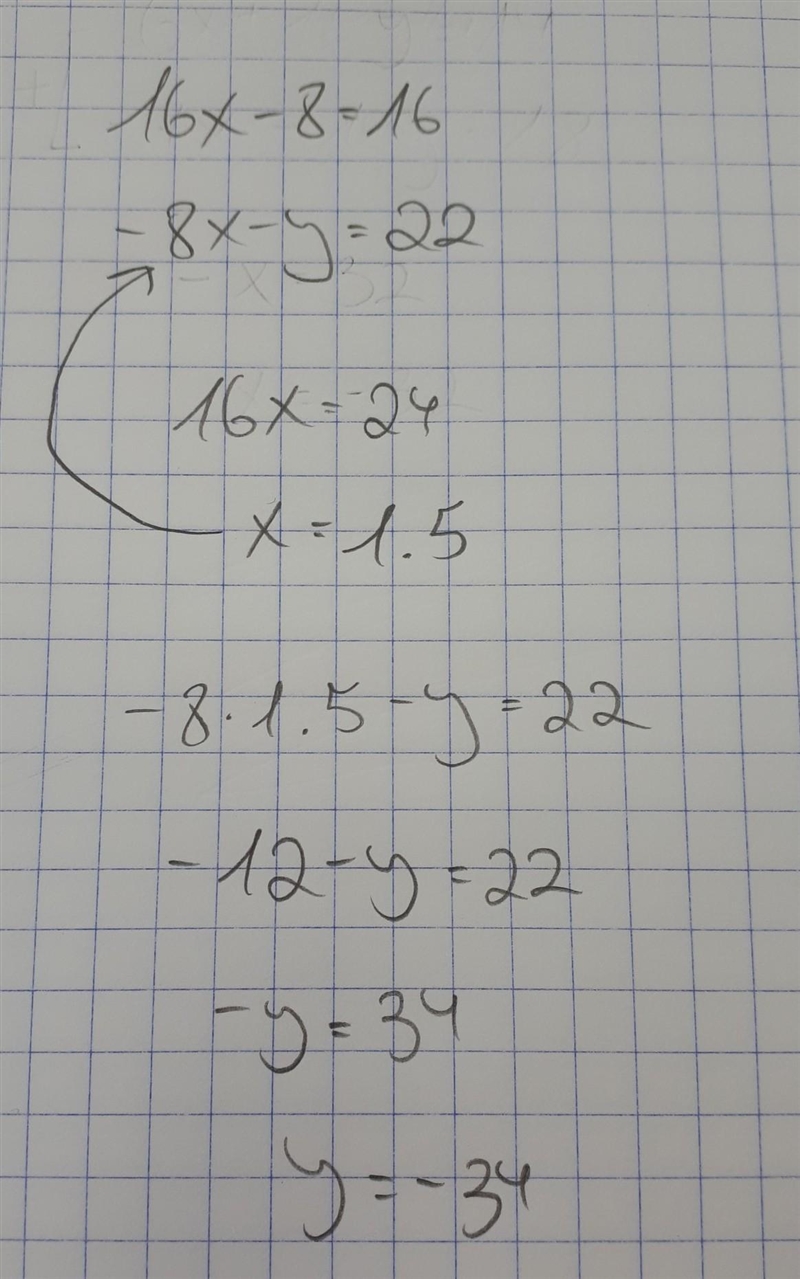 16x-8=16
-8x-y=22
16x=24
x=1.5
-8·1.5-y=22
-12-y=22
-y=34
y=-34